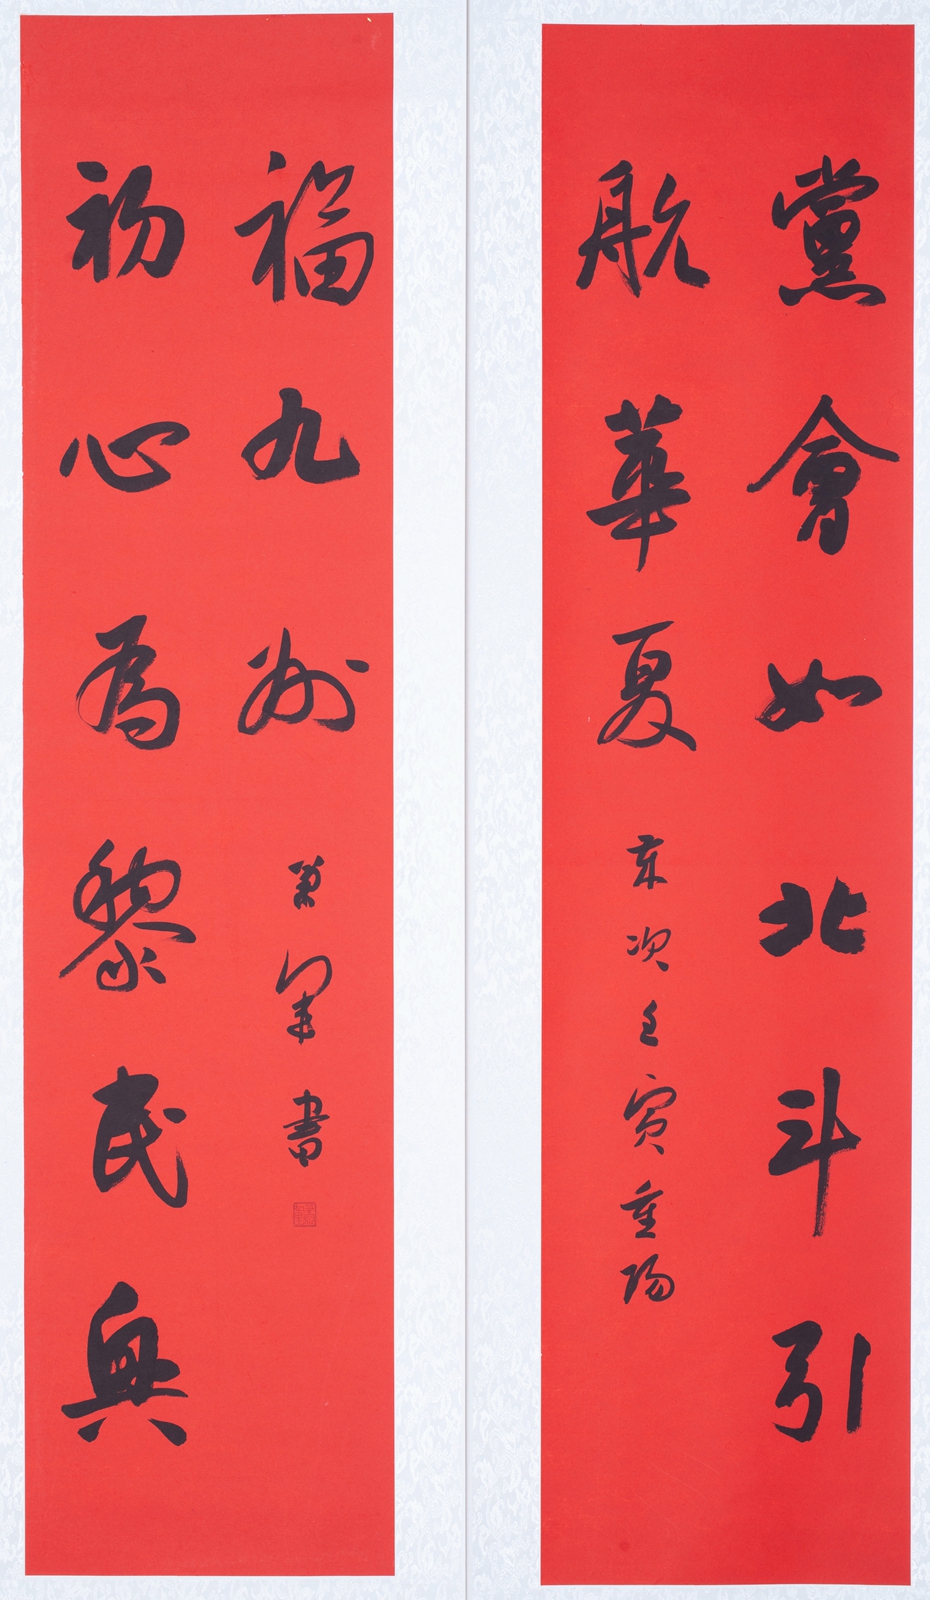 黨會如北斗引
航華夏
歲次壬寅重陽
初心為黎民興
福九州
書